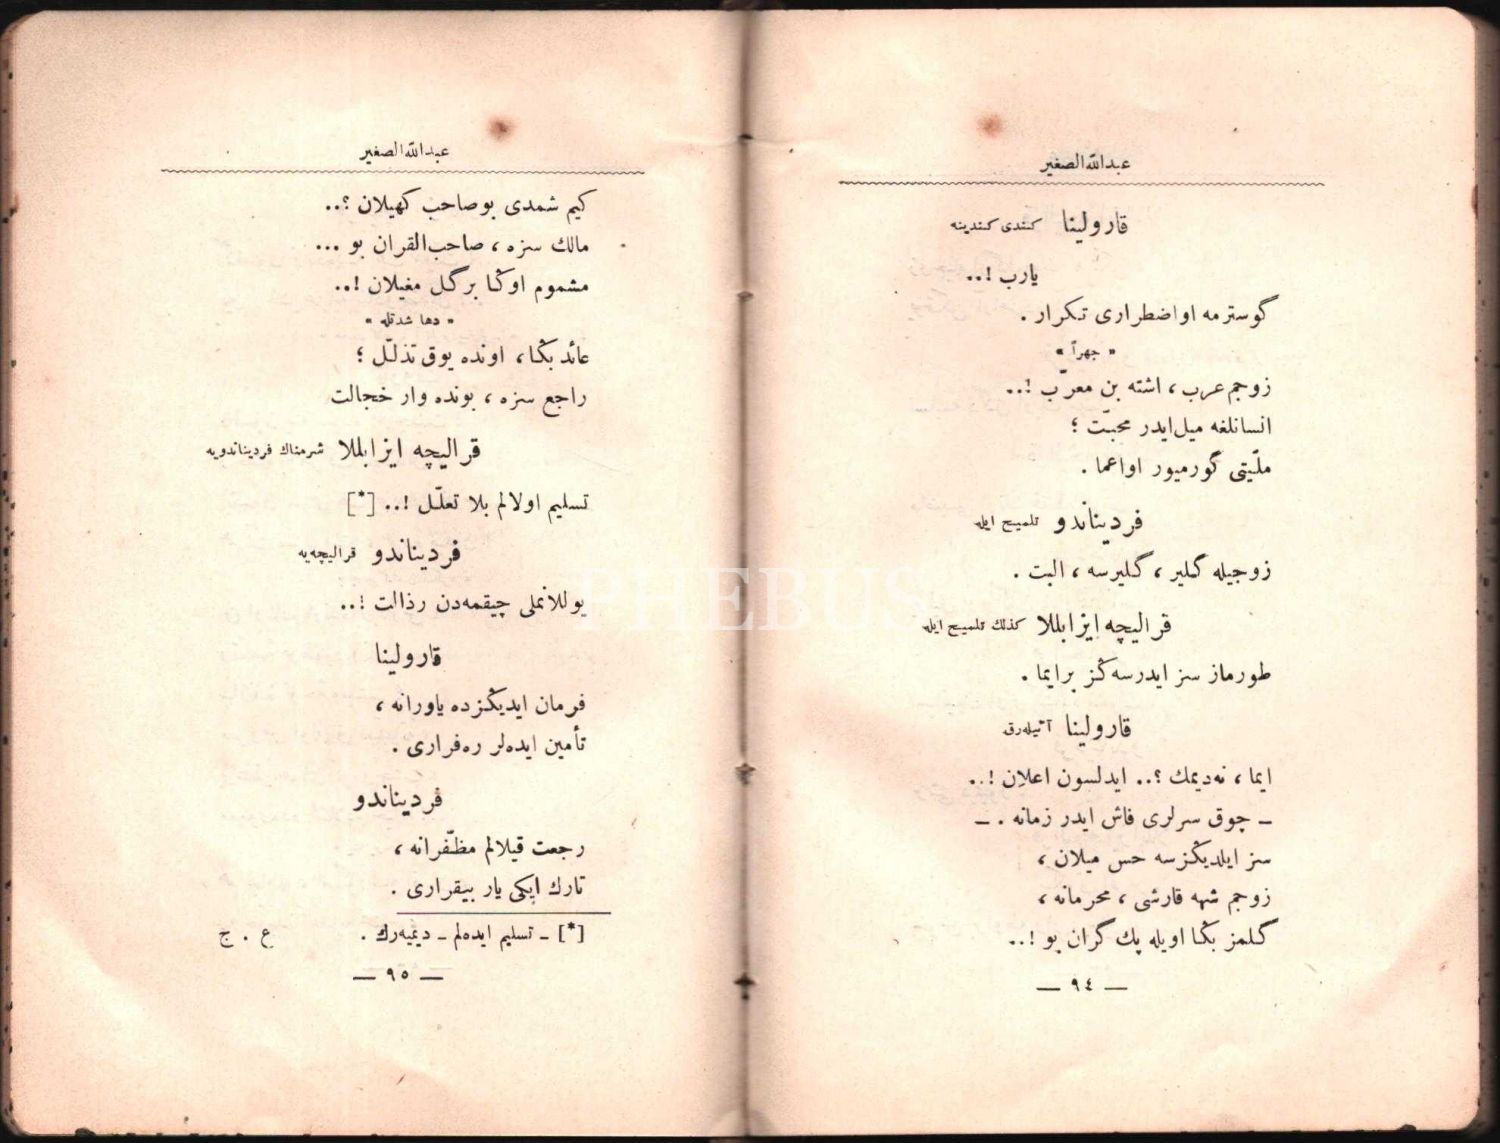 عبدالله الصغير
قارولينا كندی كندينه
يارب !..
گوسترمه او اضطراری تكرار .
« جهراً »
زوجم عرب ، اشته بن معرّب !..
انسانلغه ميل ايدر محبّت ؛
ملّيتی گورميور او اعما .
فرديناندو تلميح ايله
زوجيله گلير ، گليرسه ، البت .
قراليچه ايزابللا كذلك تلميح ايله
طورماز سز ايدرسه ڭز بر ايما .
قارولينا آتيله رق
ايما ، نه ديمك ؟.. ايدلسون اعلان !..
ـ چوق سرلری فاش ايدر زمانه . ـ
سز ايلديڭزسه حس ميلان ،
زوجم شهه قارشی ، محرمانه ،
گلمز بڭا اويله پك گران بو !..
— ٩٤ —
عبدالله الصغير
كيم شمدی بو صاحب كهيلان ؟..
مالك سزه ، صاحب القران بو ...
مشموم اوڭا بر گل مغيلان !..
« دها شدتله »
عائد بڭا ، اونده يوق تذلّل ؛
راجع سزه ، بونده وار خجالت
قراليچه ايزابللا شرمناك فرديناندويه
تسليم اولالم بلا تعلّل !.. [*]
فرديناندو قراليچه يه
يوللانملی چيقمه دن رذالت !..
قارولينا
فرمان ايديڭزده ياورانه ،
تأمين ايده لر ره فراری .
فرديناندو
رجعت قيلالم مظفّرانه ،
تارك ايكی يار بيقراری .
[*] ـ تسليم ايده لم ـ ديميه رك . ع . ج
— ٩٥ —
PHEBUS